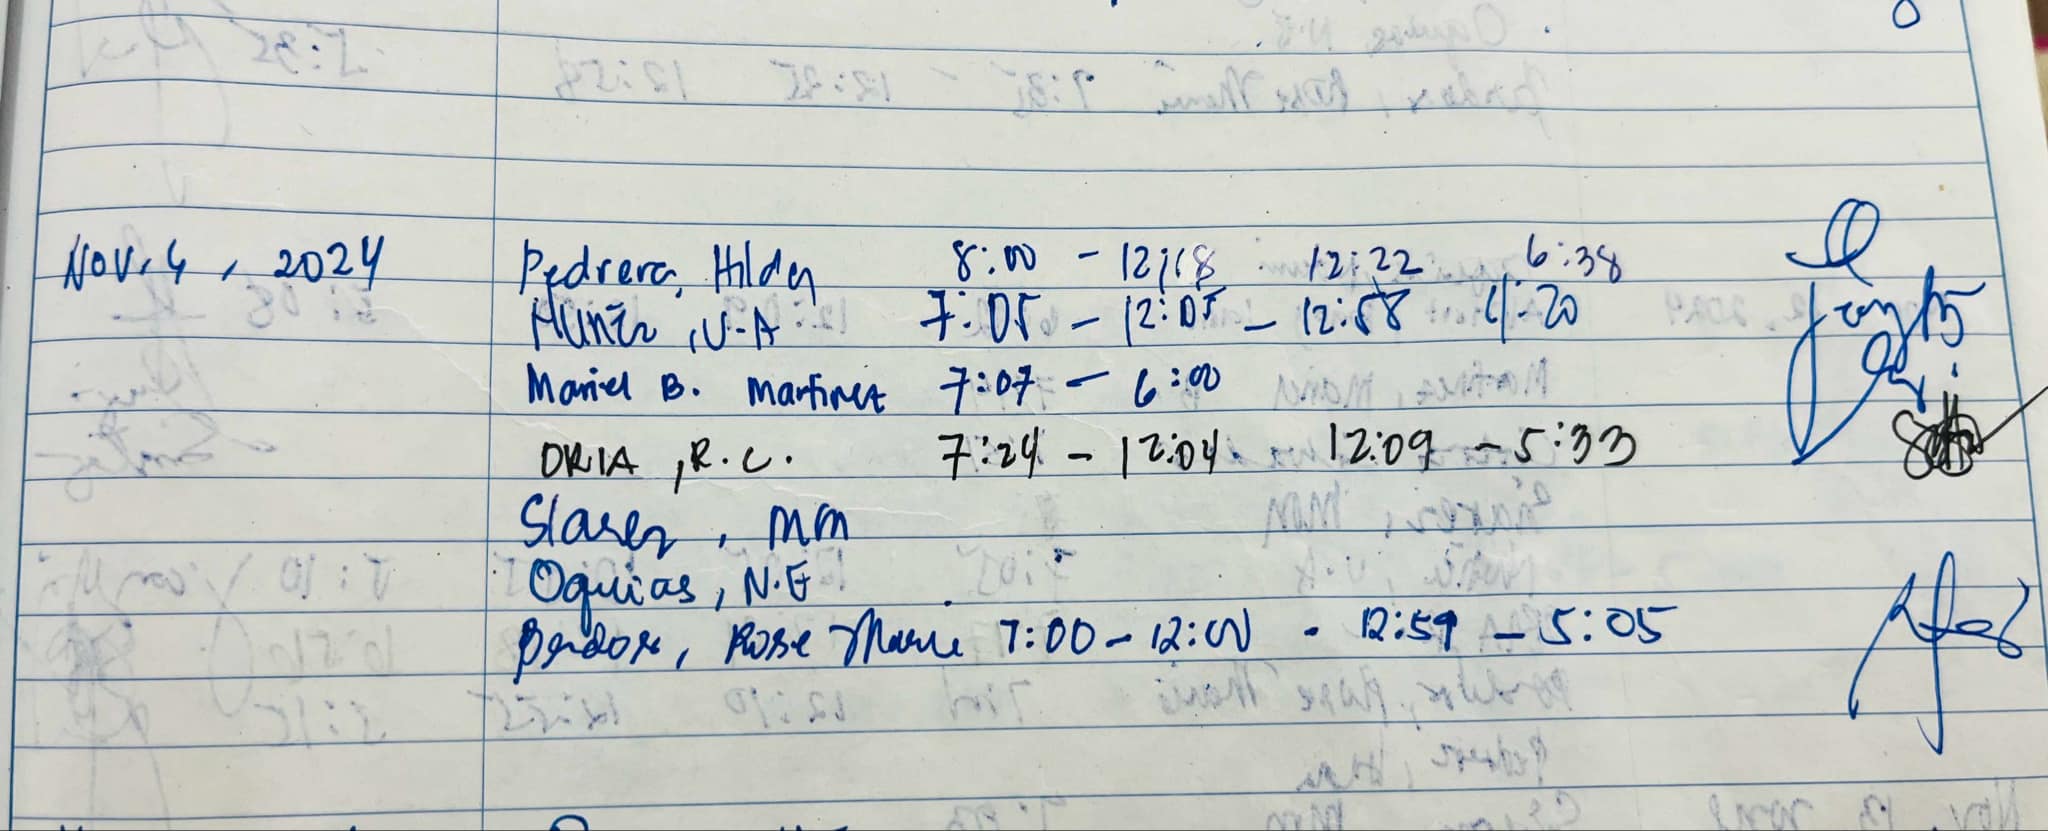 Nov. 4, 2024 Pedrera, Hilda 8:00 - 12:18 12:22 6:38
V-A 7:05 - 12:05 - 12:58 4:20
Mariel B. Martinez 7:07 - 6:00
ORIA, R.C. 7:24 - 12:04 12:09 - 5:33
, MM
Oquias, N.E
Rose Marie 7:00 - 12:00 - 12:59 - 5:05